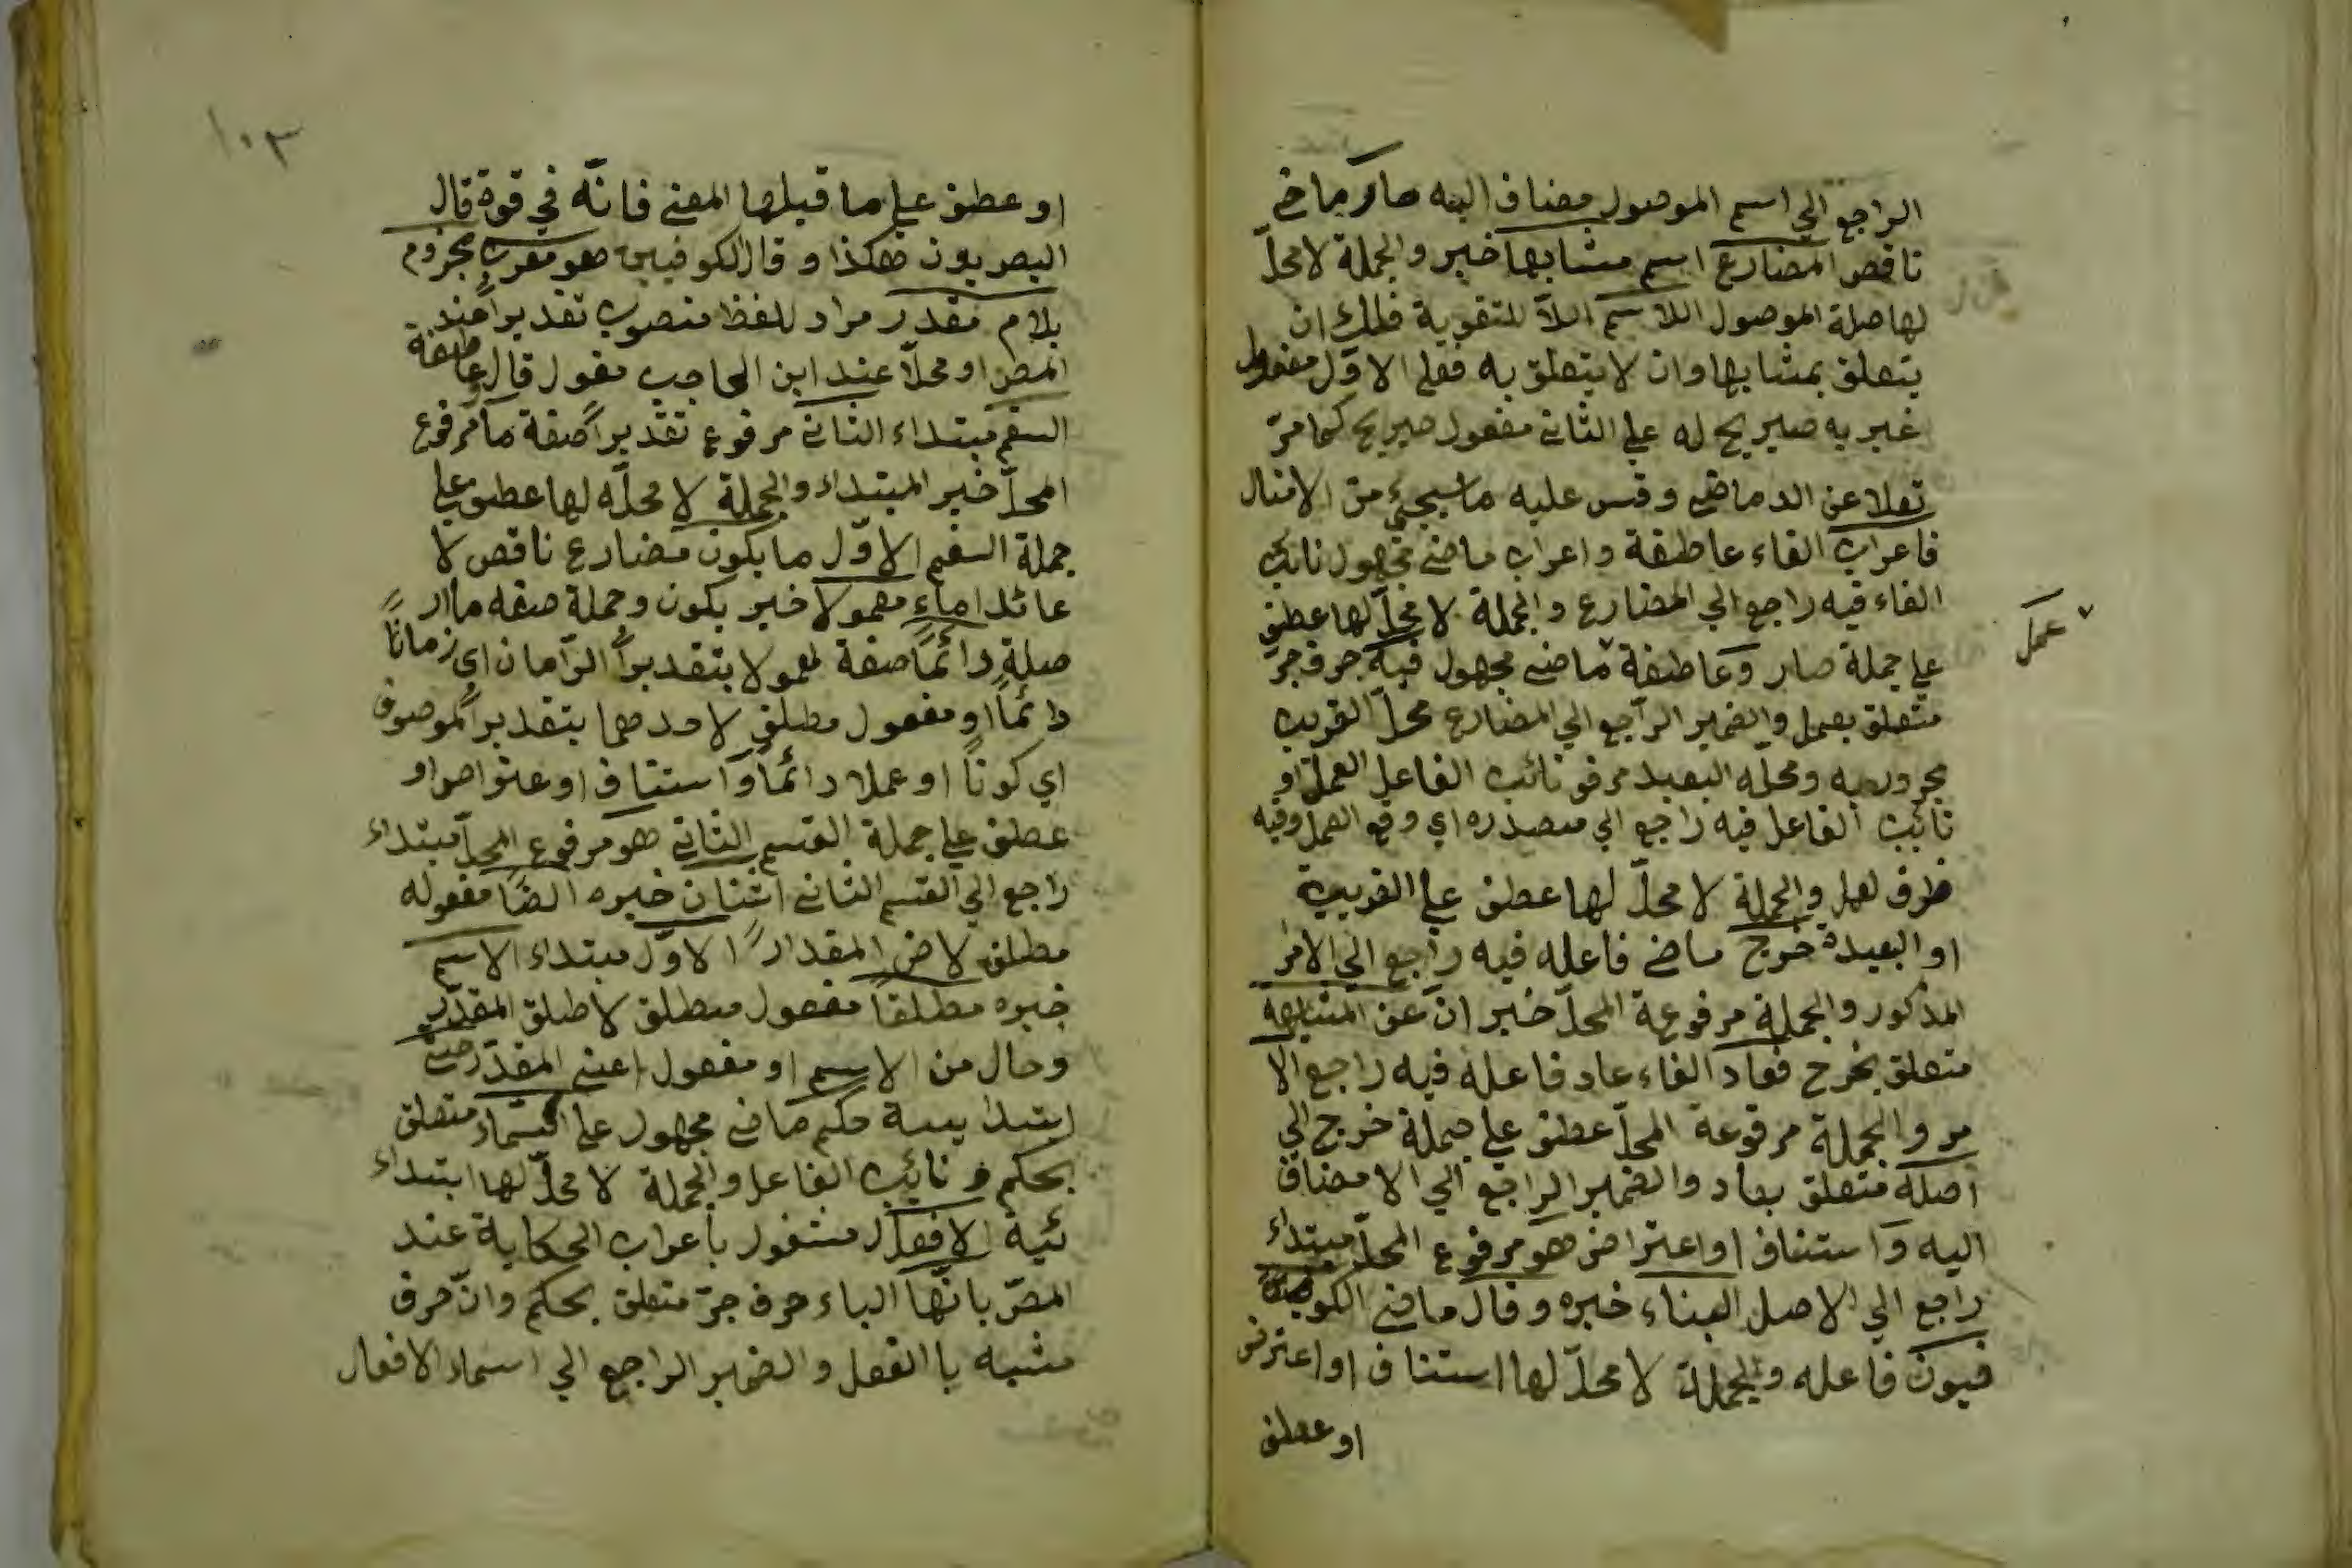 الراجع الي اسم الموصول مضاف اليه صار ماضي
ناقص المضارع اسم مشابها خبر والجملة لا محلّ
لها صلة الموصول اللاسم اللاّ للتقوية فلك ان
يتعلق بمشابها وان لا يتعلق به فعلي الاوّل مفعول
غير به صريح له علي الثاني مفعول صريح كما مرّ
نقلا عن الدماضي وقس عليه ما سيجئ من الامثال
فاعراب الفاء عاطفة واعراب ماضي مجهول نائب
الفاء فيه راجع الي المضارع والجملة لا محلّ لها عطف
علي جملة صار وعاطفة ماضي مجهول فيه حرف جرّ
عمل
متعلق بعمل والضمير الراجع الي المضارع محلّ القريب
مجرور به ومحلّه البعيد مرفو نائب الفاعل العمل او
نائب الفاعل فيه راجع الي مصدره اي وقع العمل وفيه
ظرف لعمل والجملة لا محلّ لها عطف علي القريبة
او البعيدة خرج ماضي فاعله فيه راجع الي الامر
المذكور والجملة مرفوعة المحلّ خبر انّ عن المشابهة
متعلق بخرج فعاد الفاء عاد فاعله فيه راجع الا
مر والجملة مرفوعة المحلّ عطف علي جملة خرج الي
اصله متعلق بعاد والضمير الراجع الي الا مضاف
اليه وَ استئناف او اعتراض هو مرفوع المحلّ مبتداء
راجع الي الاصل البناء خبره وقال ماضي الكو
فيون فاعله والجملة لا محلّ لها استئناف او اعترض
او عطف
١٠٣
او عطف علي ما قبلها المعني فانّه في قوة قال
البصريون هكذا وقال الكوفيين هو معرب مجزوم
بلام مقدر مراد للفظ منصوب تقديراً عند
المص او محلّا عند ابن الحاجب مقول قال وَ عاطفة
القسم مبتداء الثاني مرفوع تقديراً صفة ما مرفوع
المحلّ خبر المبتداء والجملة لا محلّه لها عطف علي
جملة القسم الاوّل ما يكون مضارع ناقص لا
عائد اماء معمولا خبر يكون وجملة صفه ما ار
صلة دائماً صفة لمعمولا بتقدير الزّامان اي زماناً
دائماً او مفعول مطلق لاحدهما بتقدير الموصوف
اي كوناً او عملا دائماً وَ استئناف او عتراص او
عطف علي جملة القسم الثاني هو مرفوع المحلّ مبتداء
راجع الي القسم الثاني اثنان خبره ايضًا مفعوله
مطلق لاض المقدار الاوّل مبتداء الاسم
خبره مطلقاً مفعول مطلق لاطلق المقدّر
وحال من الاسم او مفعول اعني المقدّر
ابتدا يية حكم ماضي مجهول علي اسماء متعلق
بحكم و نائب الفاعل والجملة لا محلّ لها ابتداء
ئية الافعال مشغول باعراب الحكاية عند
المصّ بانّها الباء حرف جرّ متعلق بحكم وانّ حرف
مشبه باالفعل والضمير الراجع الي اسماء الافعال